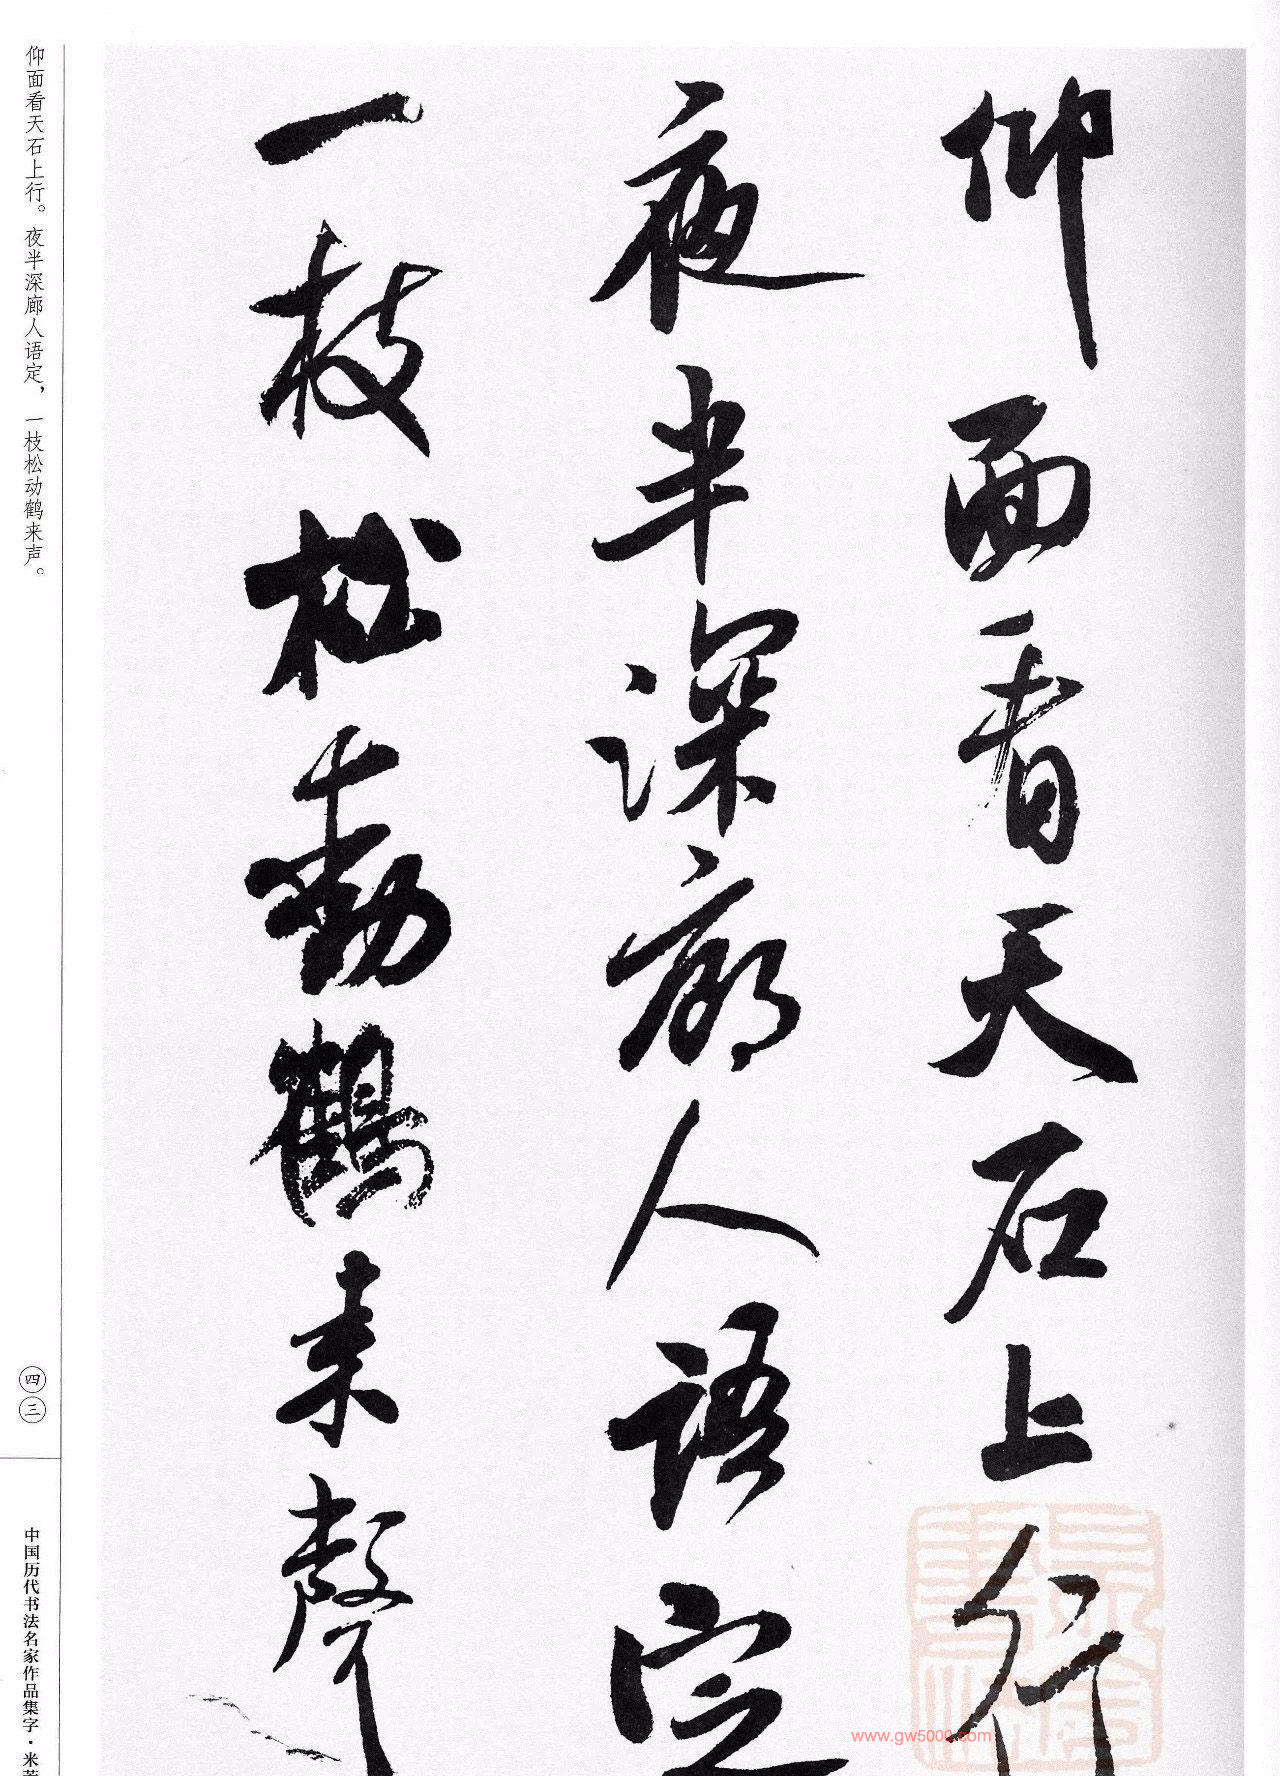 仰面看天石上行
夜半深廊人语定
一枝松動鶴来聲
仰面看天石上行。夜半深廊人语定，一枝松动鹤来声。
四三
中国历代书法名家作品集字·米
www.gw5000.com